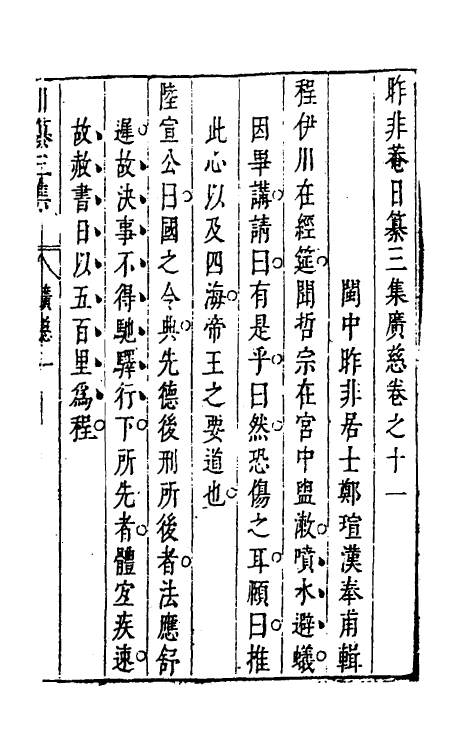 昨非菴日纂三集廣慈卷之十一
閩中昨非居士鄭瑄漢奉甫輯
程伊川在經筵聞哲宗在宮中盥漱噴水避蟻
因畢講請曰有是乎曰然恐傷之耳頤曰推
此心以及四海帝王之要道也
陸宣公曰國之令典先德後刑所後者法應舒
遲故決事不得馳驛行下所先者體宜疾速
故赦書日以五百里為程
日纂三集
廣慈一